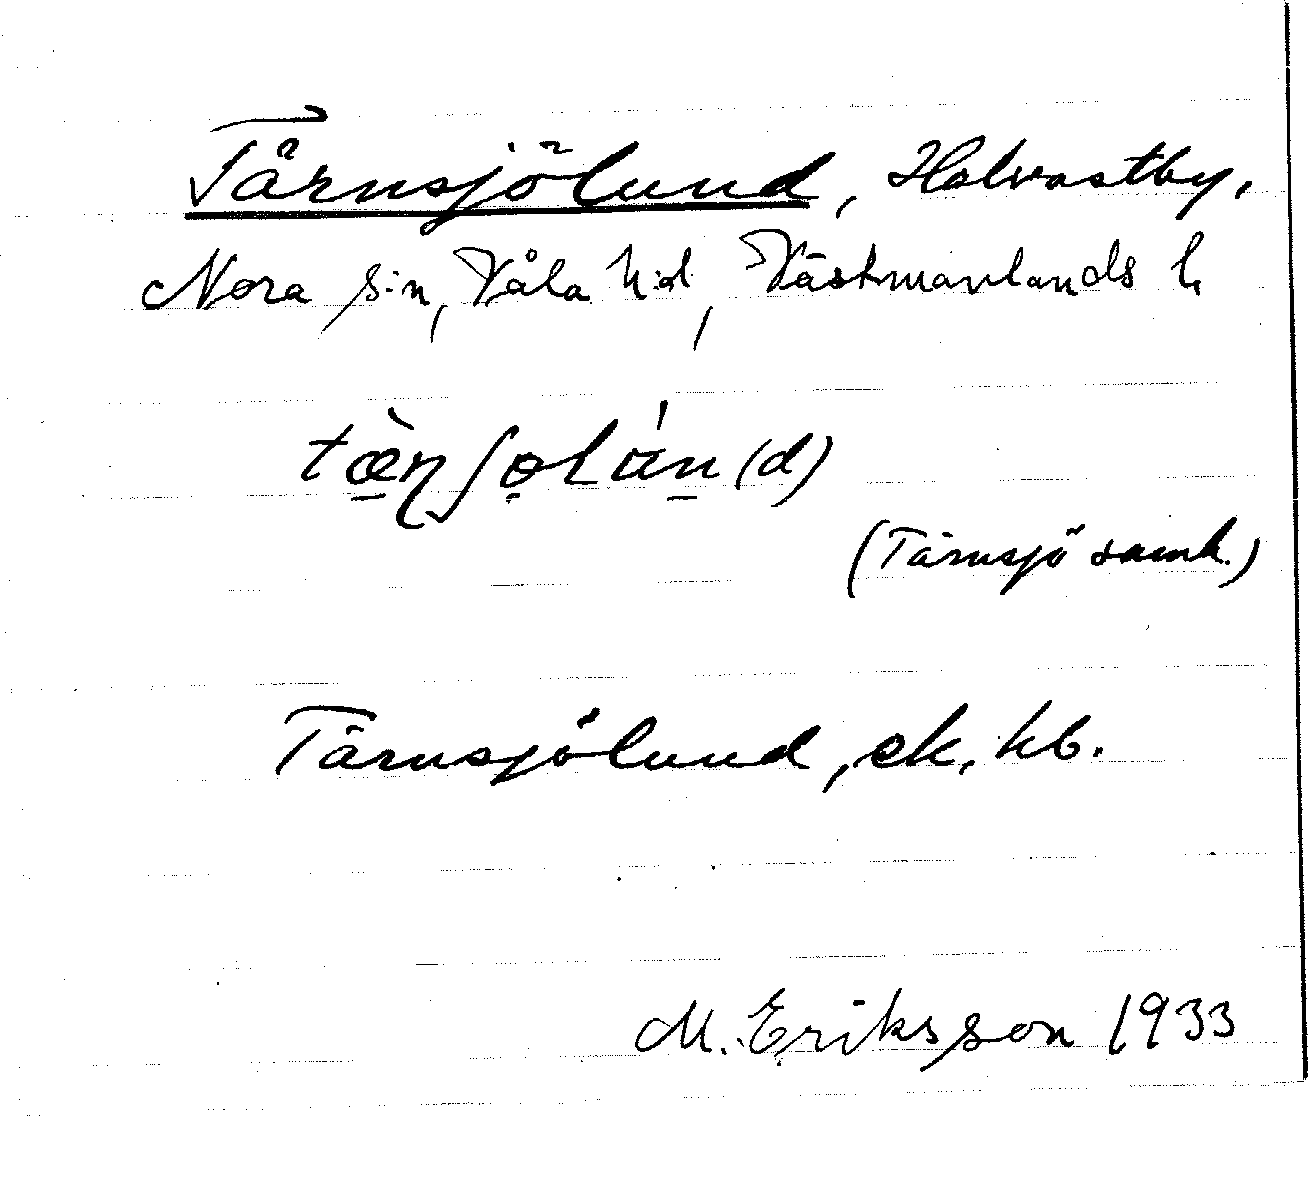 Tärnsjölund, Holvastby,
Nora s:n, Våla h:d, Västmanlands l.
(d)
(Tärnsjö samh.)
Tärnsjölund, ek. kb.
M. Eriksson 1933